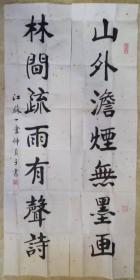 山外澹煙無墨画
林間疏雨有聲詩